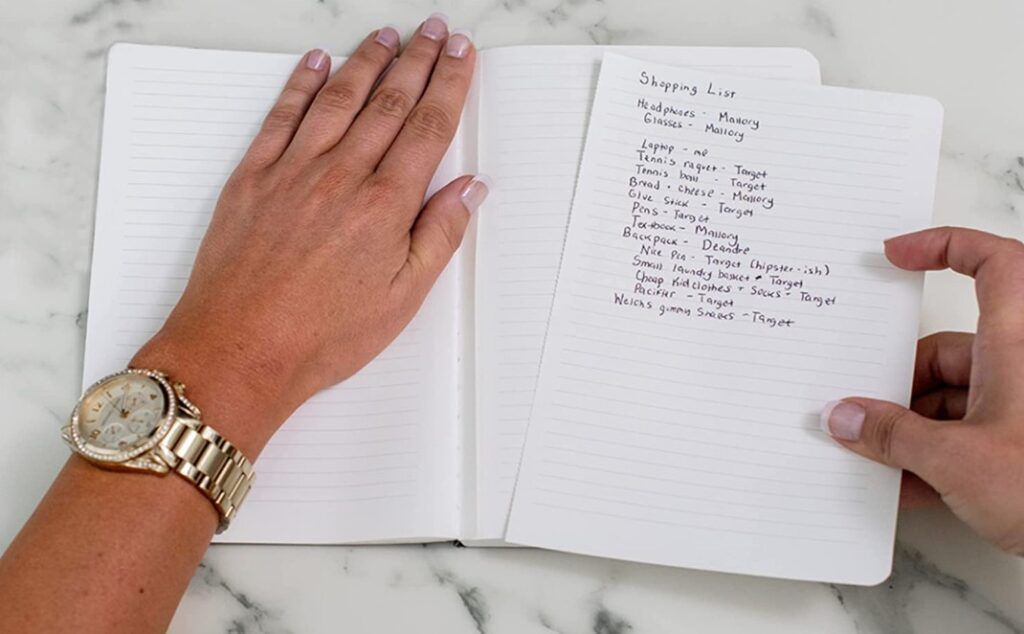 Shopping List
Headphones - Mallory
Glasses - Mallory
Laptop - me
Tennis raquet - Target
Tennis ball - Target
Bread + cheese - Mallory
Glue stick - Target
Pens - Target
Textbook - Mallory
Backpack - Deandre
Nice pen - Target (hipster-ish)
Small laundry basket - Target
Cheap kid clothes + socks - Target
Pacifier - Target
Welchs gimmy snacks - Target